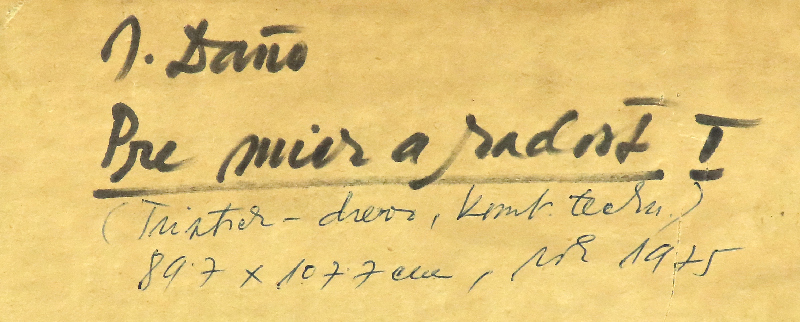 J. Daňo
Pre mier a radosť I
(Triptich - drevo, komb. techn.)
89.7 x 107.7 cm, rok 1975